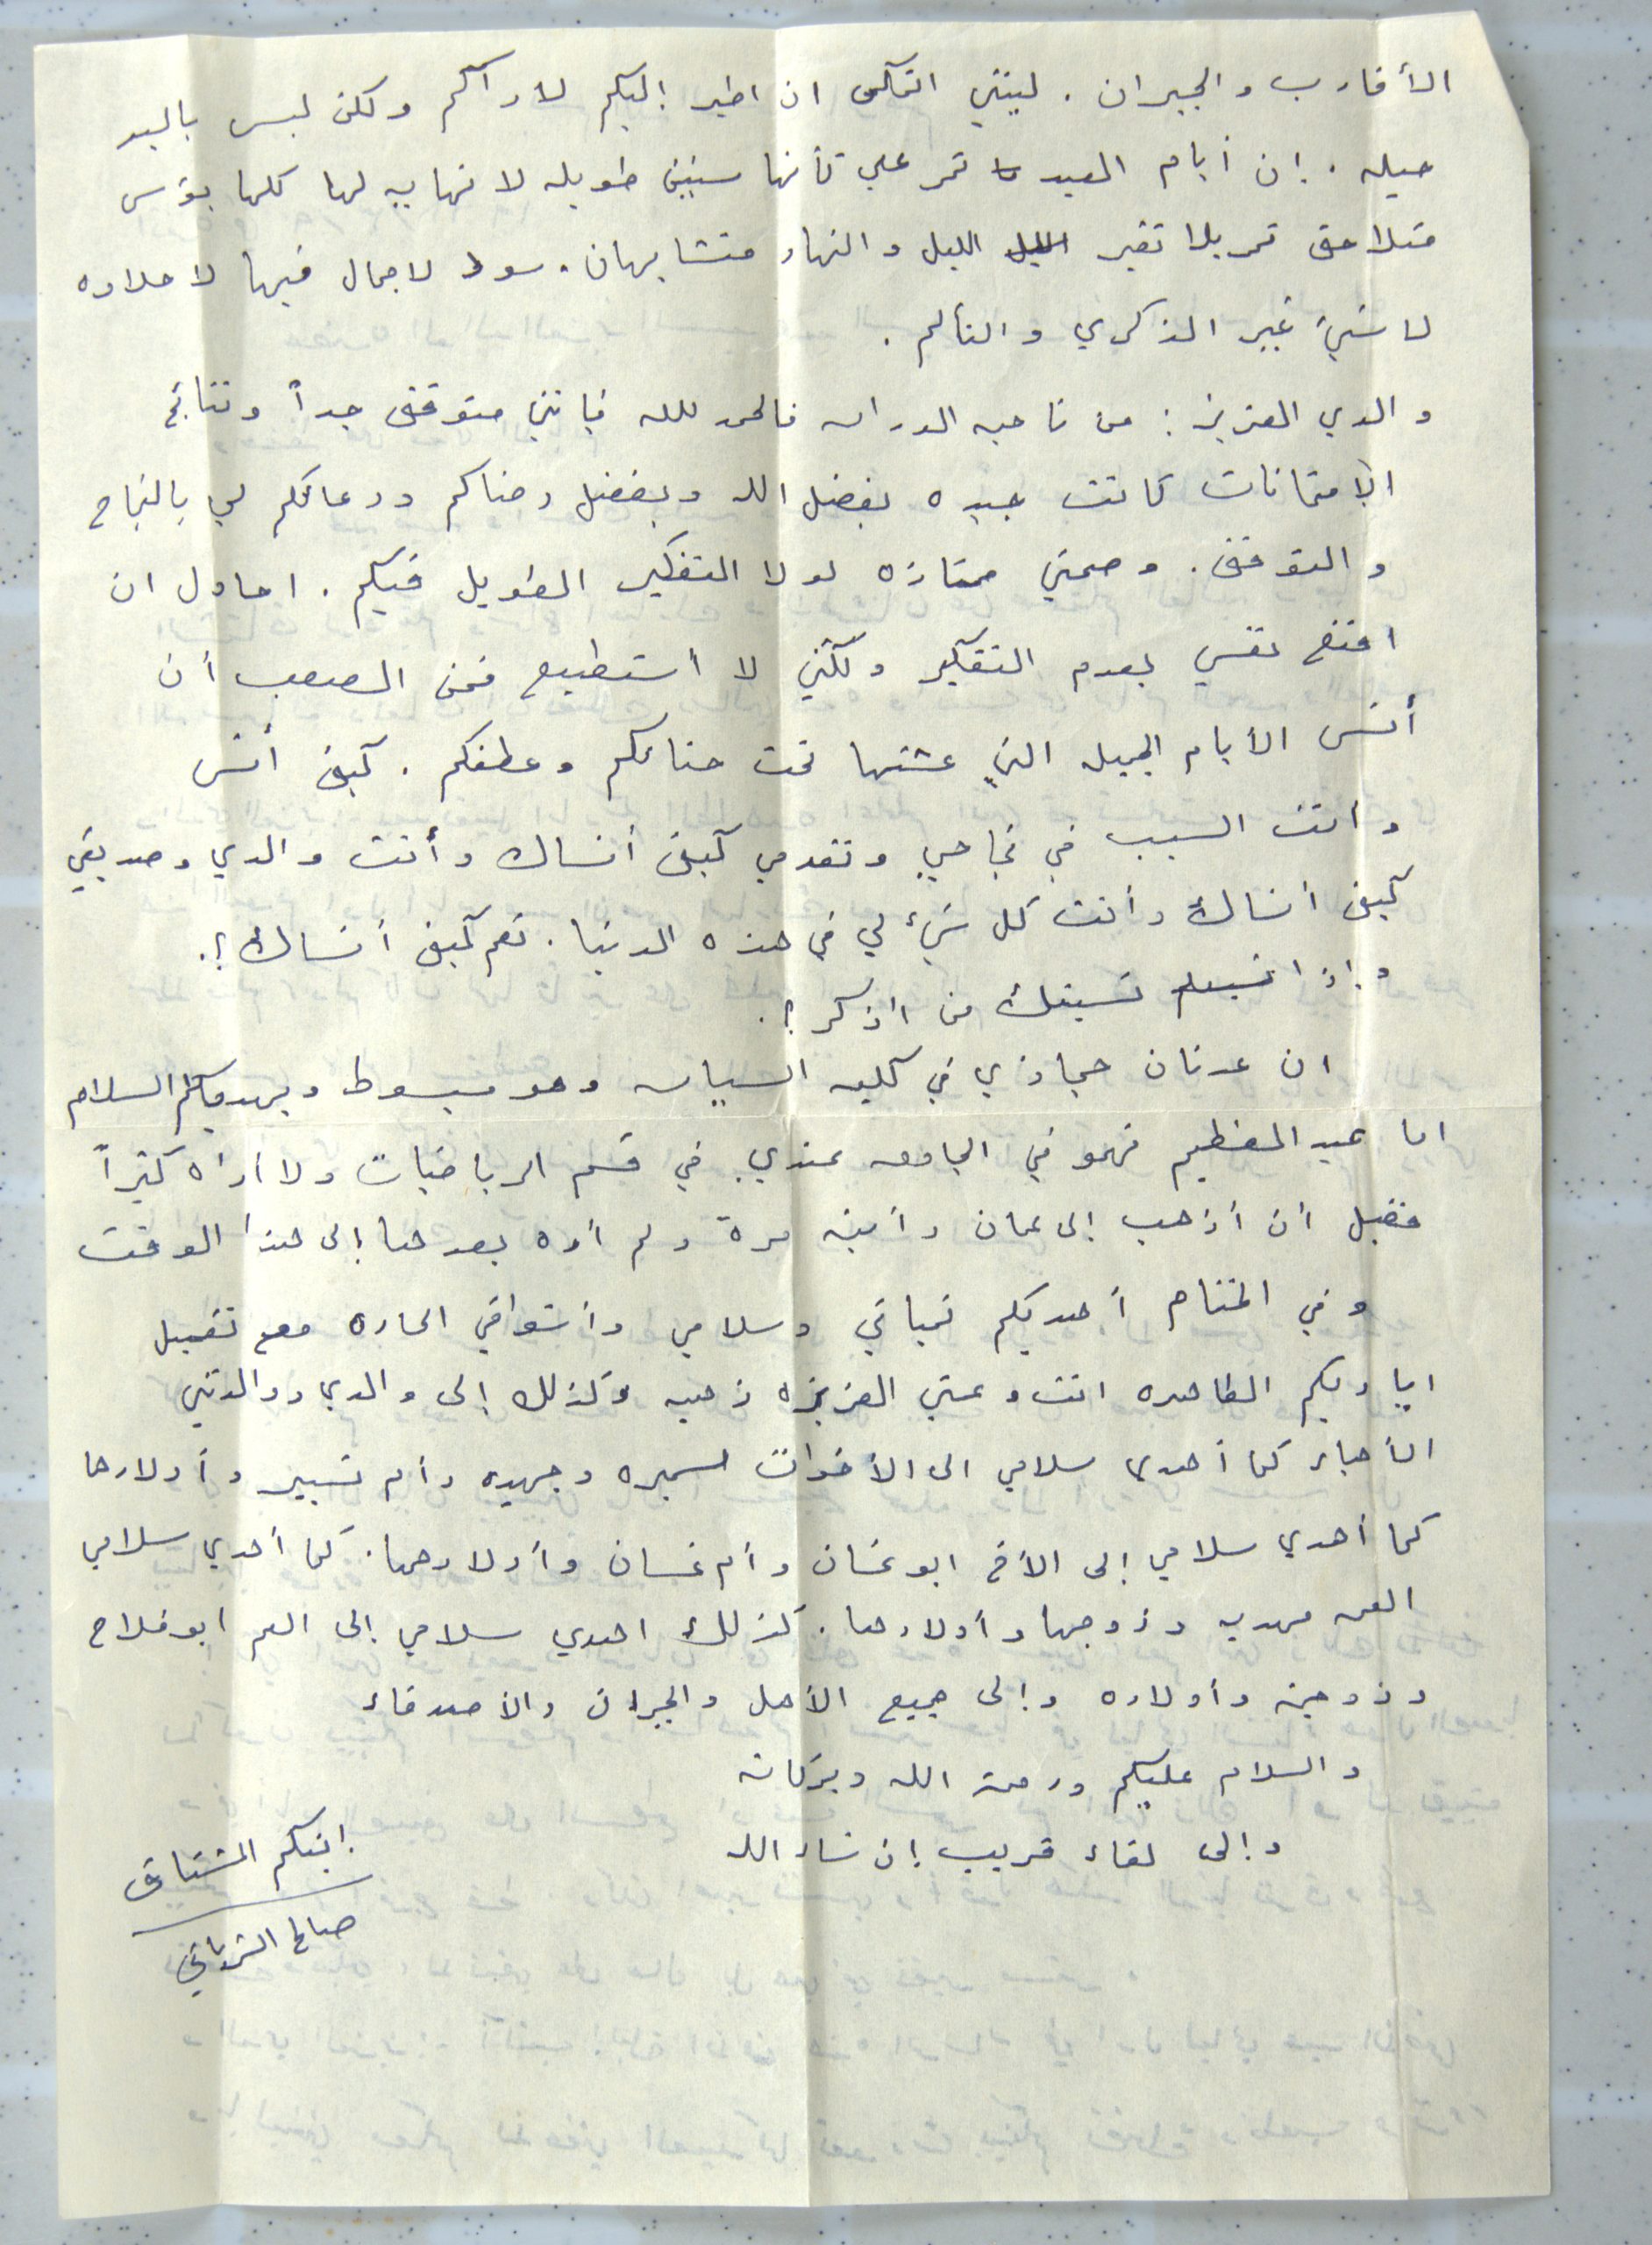 الأقارب والجيران . ليتني اتمكن ان اطير إليكم لاراكم ولكن ليس باليد
حيله . إن أيام العيد تمر علي كأنها سنين طويله لا نهايه لها كلها بؤس
متلاحق تمر بلا تغير الليل والنهار متشابهان . سود لا جمال فيها لا حلاوه
لا شيئ غير الذكرى والتألم .
والدي العزيز : من ناحيه الدراسه فالحمد لله فإنني متوفق جداً ونتائج
الإمتحانات كانت جيده بفضل الله وبفضل رضاكم ودعائكم لي بالنجاح
والتوفق . وصحتي ممتازه لولا التفكير الطويل فيكم . احاول ان
اقنع نفسي بعدم التفكير ولكنني لا أستطيع فمن الصعب أن
أنسى الأيام الجميله التي عشتها تحت حنانكم وعطفكم . كيف أنسى
وانت السبب في نجاحي وتقدمي كيف أنساك وأنت والدي وصديقي
كيف أنساك وأنت كل شيء لي في هذه الدنيا . نعم كيف أنساك ؟.
وإذا نسيتك من اذكر ؟.
ان عدنان حجازي في كليه السياسه وهو مبسوط ويهديكم السلام
اما عبد العظيم فهو في الجامعه عندي في قسم الرياضيات ولا أراه كثيراً
فقبل أن أذهب إلى عمان رأيته مرة ولم أره بعدها إلى هذا الوقت
وفي الختام أهديكم تحياتي وسلامي وأشواقي الحاره مع تقبيل
اياديكم الطاهره انت وعمتي العزيزه ذهبيه وكذلك إلى والدي ووالدتي
الأحباء كما أهدي سلامي الى الأخوات سميره وجهيده وأم تيسير وأولادها
كما أهدي سلامي إلى الأخ ابو غسان وأم غسان وأولادهما . كما أهدي سلامي
العمه مهديه وزوجها وأولادها . كذلك اهدي سلامي إلى العم ابو فلاح
وزوجته وأولاده وإلى جميع الأهل والجيران والأصدقاء
والسلام عليكم ورحمة الله وبركاته
وإلى لقاء قريب إن شاء الله
إبنكم المشتاق
صالح